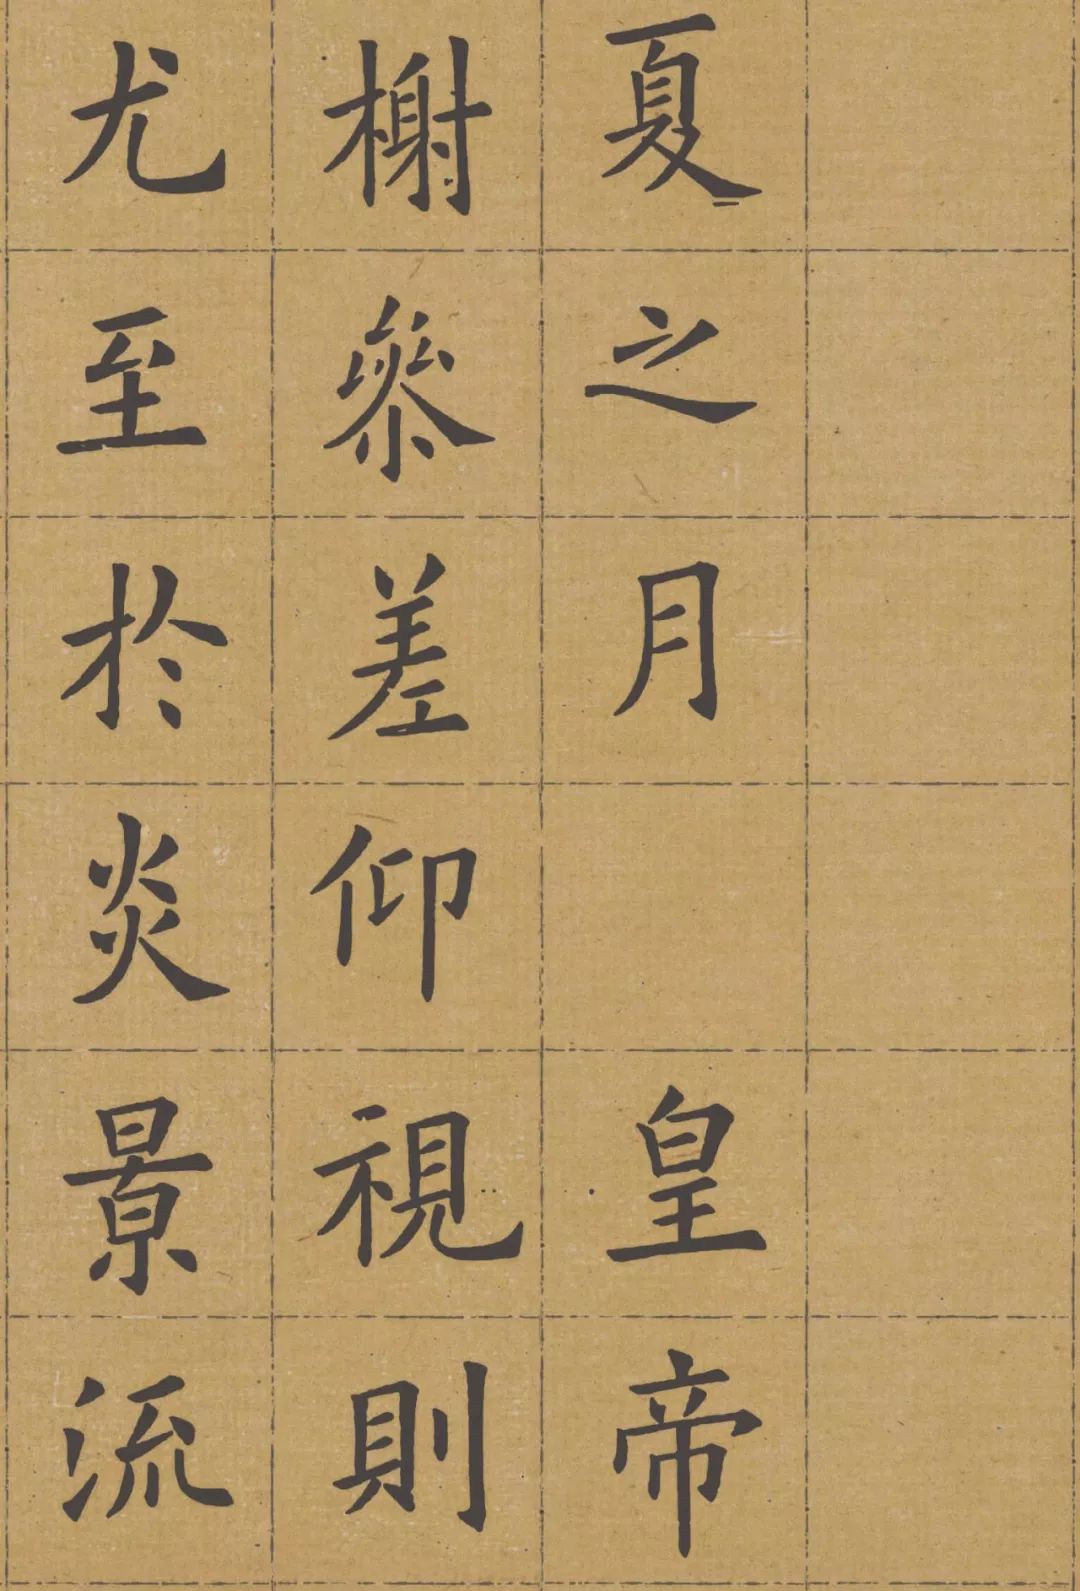 夏之月 皇帝
榭參差仰視則
尤至於炎景流